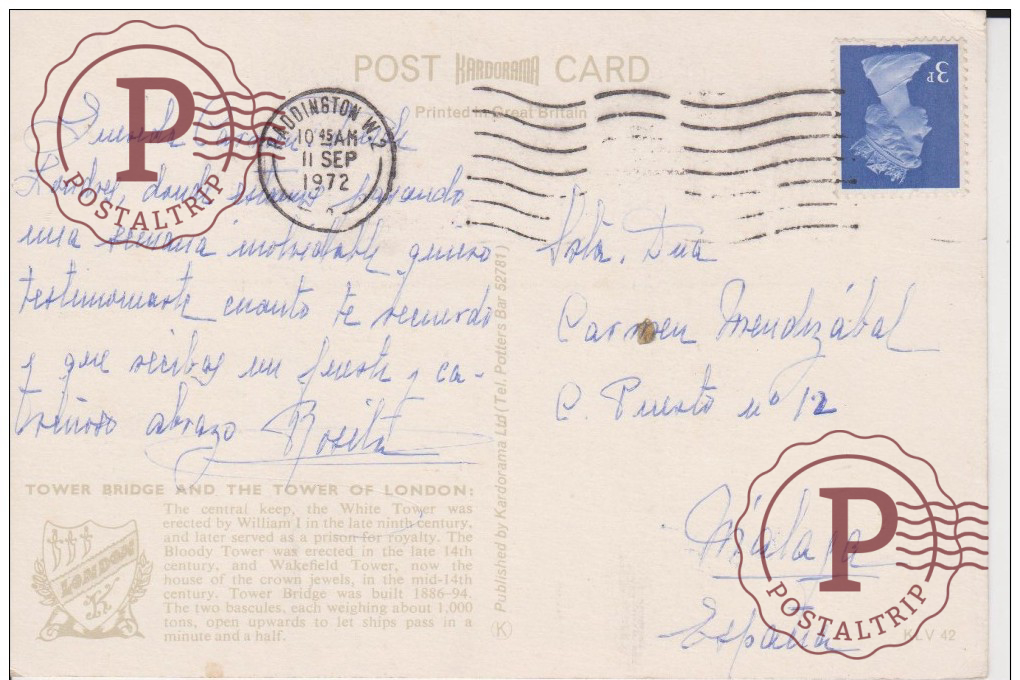 POST KARDORAMA CARD
Printed in Great Britain
3P
PADDINGTON W.2
10 45 AM
11 SEP
1972
P
POSTALTRIP
Querida Carmen
Londres, donde estamos pasando
una semana inolvidable quiero
testimoniarte cuanto te recuerdo
y que recibas un fuerte y ca-
riñoso abrazo Rosita
Srta. Dña
Carmen Mendizábal
C. Puerto nº 12
Málaga
España
TOWER BRIDGE AND THE TOWER OF LONDON:
The central keep, the White Tower was
erected by William I in the late ninth century,
and later served as a prison for royalty. The
Bloody Tower was erected in the late 14th
century, and Wakefield Tower, now the
house of the crown jewels, in the mid-14th
century. Tower Bridge was built 1886-94.
The two bascules, each weighing about 1,000
tons, open upwards to let ships pass in a
minute and a half.
LONDON
Published by Kardorama Ltd (Tel. Potters Bar 52781)
K
P
POSTALTRIP
KLV 42